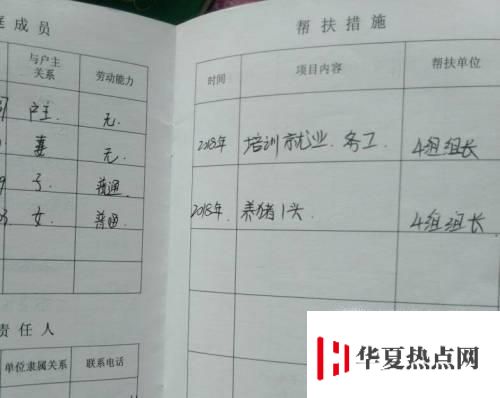 庭成员
与户主关系 劳动能力
户主 无
妻 无
子 普通
女 普通
责任人
单位隶属关系 联系电话
帮扶措施
时间 项目内容 帮扶单位
2018年 培训就业、务工 4组组长
2018年. 养猪1头. 4组组长
华夏热点网